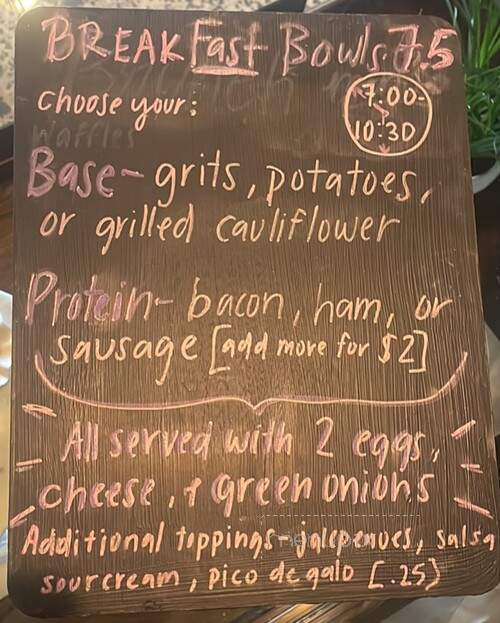 BREAKFast Bowls 7.5
choose your:
7:00-
10:30
Waffles
Base- grits, potatoes,
or grilled cauliflower
Protein- bacon, ham, or
sausage [add more for $2]
All served with 2 eggs,
cheese, + green onions
Additional toppings- jalepenues, salsa
sourcream, pico de galo [.25]